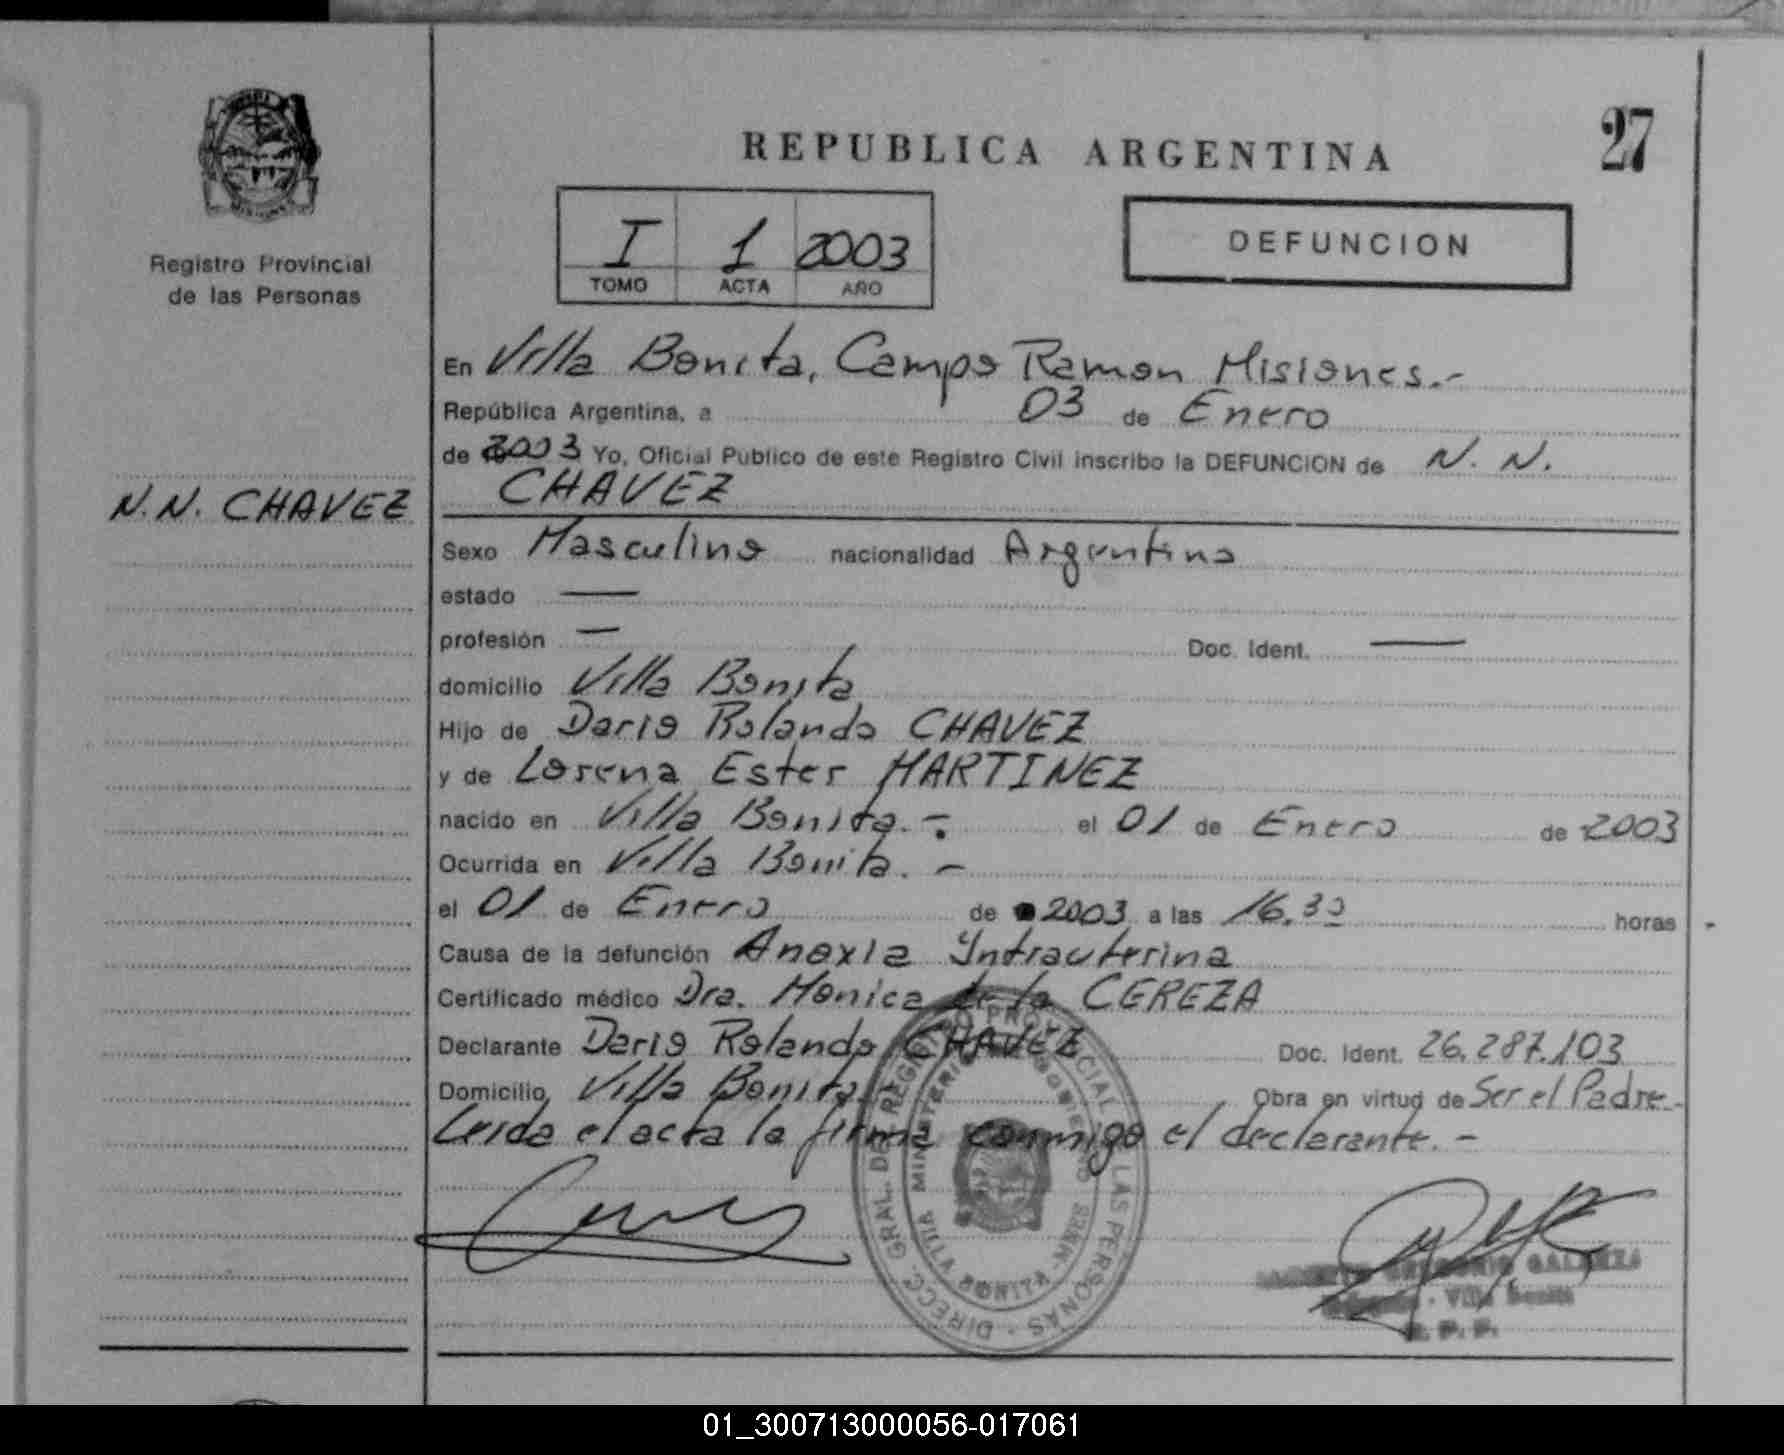 REPUBLICA ARGENTINA
27
Registro Provincial
de las Personas
I 1 2003
TOMO ACTA AÑO
DEFUNCION
En Villa Bonita, Campo Ramon Misiones.-
República Argentina, a 03 de Enero
de 2003 Yo, Oficial Público de este Registro Civil inscribo la DEFUNCION de N. N.
CHAVEZ
N.N. CHAVEZ
Sexo Masculino nacionalidad Argentina
estado —
profesión — Doc. Ident. —
domicilio Villa Bonita
Hijo de Dario Rolando CHAVEZ
y de Lorena Ester MARTINEZ
nacido en Villa Bonita.-. el 01 de Enero de 2003
Ocurrida en Villa Bonita.-
el 01 de Enero de 2003 a las 16.30 horas
Causa de la defunción Anoxia Intrauterina
Certificado médico Dra. Monica de la CEREZA
Declarante Dario Rolando CHAVEZ Doc. Ident. 26.287.103
Domicilio Villa Bonita Obra en virtud de Ser el Padre.-
Leida el acta la firma conmigo el declarante.-
DIRECC. GRAL. DEL REGISTRO PROVINCIAL DE LAS PERSONAS
MINISTERIO DE GOBIERNO
VILLA BONITA - MNES
GALARZA
Villa Bonita
R. P. P.
01_300713000056-017061